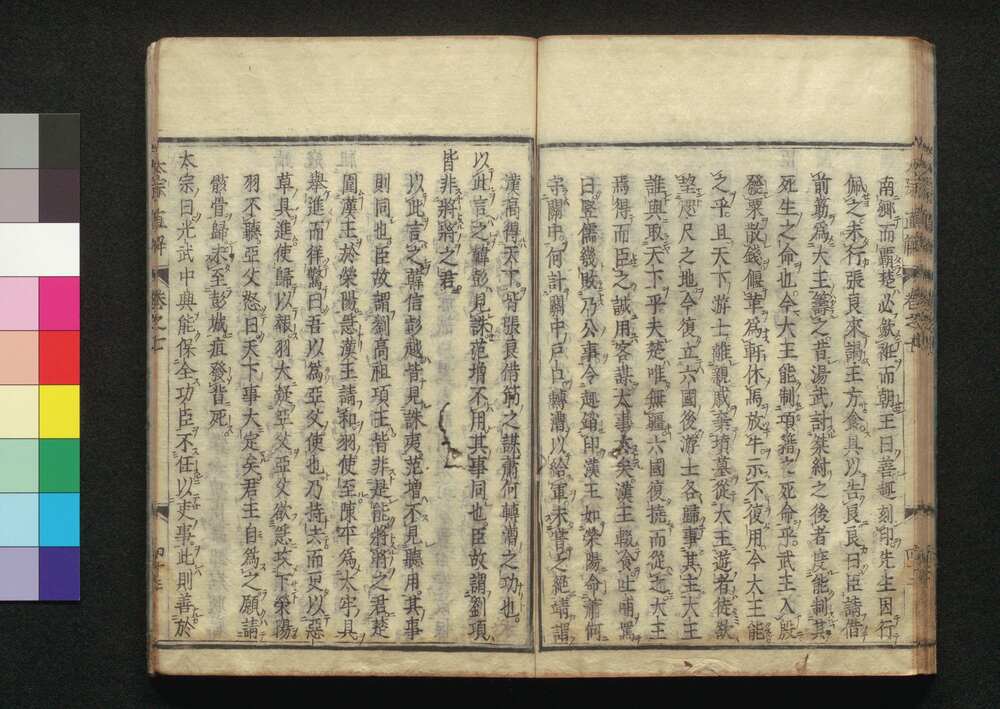 南鄉而霸楚必斂衽而朝王曰善趣刻印先生因行
佩之未行張良來謁王方食具以告良良曰臣請借
前筯為大王籌之昔湯武討桀紂之後者度能制其
死生之命也今大王能制項籍之死命乎武王入殷
發粟散錢偃革為軒休馬放牛示不復用今大王能
之乎且天下游士離親戚棄墳墓從大王遊者徒欲
望咫尺之地今復立六國後游士各歸事其主大王
誰與取天下乎夫楚唯無疆六國復撓而從之大王
焉得而臣之誠用客謀大事去矣漢王輟食吐哺罵
曰豎儒幾敗乃公事令趣銷印漢王如滎陽命蕭何
守關中何計關中戶口轉漕以給軍未嘗乏絕靖謂
漢高得天下皆張良借筯之謀蕭何轉漕之功也
以此言之韓彭見誅范增不用其事同也臣故謂劉項
皆非將將之君
以此言之韓信彭越皆見誅夷范增不見聽用其事
則同也臣故謂劉高祖項王皆非是能將將之君楚
圍漢王於滎陽急漢王請和羽使至陳平為太牢具
舉進而佯驚曰吾以為亞父使也乃持去而更以惡
草具進使歸以報羽大疑亞父亞父欲急攻下滎陽
羽不聽亞父怒曰天下事大定矣君王自為之願請
骸骨歸未至彭城疽發背死
太宗曰光武中興能保全功臣不任以吏事此則善於